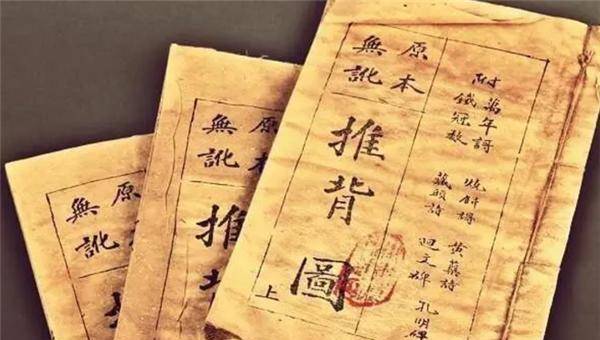 附
萬年謌
鐵冠數
燒餅謌
藏頭詩
黃蘗詩
迴文碑
孔明碑
原本
無訛
推背圖
上
原本
無訛
推背
原本
無訛